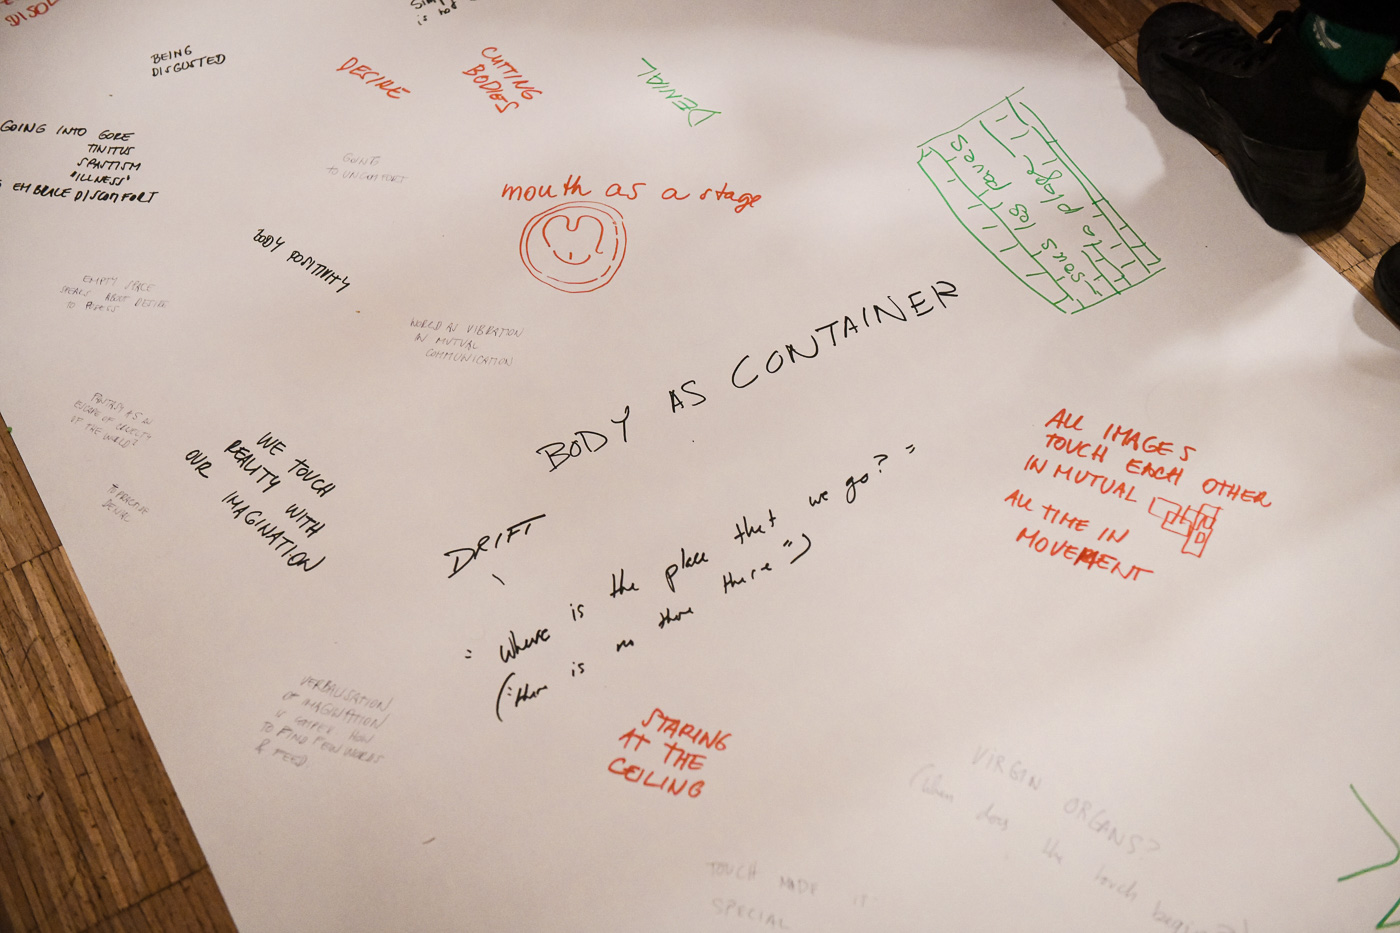 BEING
DISGUSTED
DESIRE
CUTTING
BODIES
DENIAL
GOING INTO GORE
TINITUS
SPASTISM
"ILLNESS"
EMBRACE DISCOMFORT
GOING
TO UNCOMFORT
mouth as a stage
sous les pavés
la plage
BODY POSITIVITY
EMPTY SPACE
SPEAKS ABOUT DESIRE
TO
WORLD AS VIBRATION
IN MUTUAL
COMMUNICATION
BODY AS CONTAINER
FANTASY AS AN
OF CRUELTY
OF THE WORLD?
WE TOUCH
REALITY WITH
OUR IMAGINATION
TO PRACTISE
DENIAL
ALL IMAGES
TOUCH EACH OTHER
IN MUTUAL
ALL TIME IN
MOVEMENT
DRIFT
= Where is the place that we go? =
(= there is no there there =)
VERBALISATION
OF IMAGINATION
HOW
TO FIND FEW WORDS
& FEED
STARING
AT THE
CEILING
VIRGIN ORGANS?
(When does the touch begin?)
TOUCH MADE IT
SPECIAL